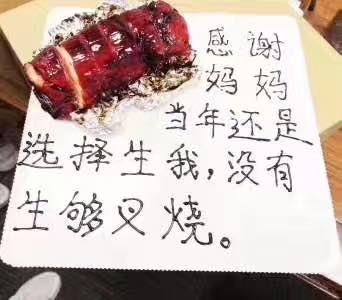 感谢
妈妈
当年还是
选择生我,没有
生够叉烧。